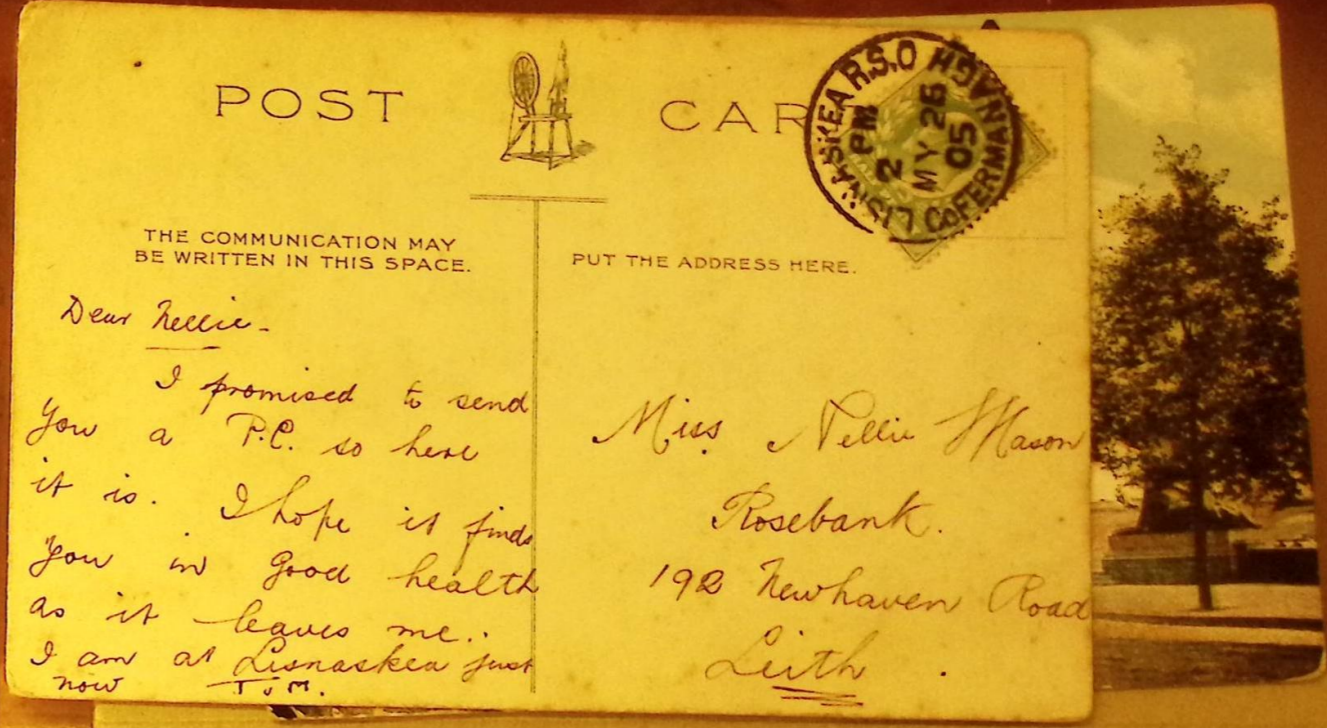 POST CAR
LISNASKEA R.S.O
Co FERMANAGH
2 PM
MY 26
05
THE COMMUNICATION MAY
BE WRITTEN IN THIS SPACE.
PUT THE ADDRESS HERE.
Dear Nellie -
I promised to send
you a P.C. so here
it is. I hope it finds
you in good health
as it leaves me.
I am at Lisnaskea just
now T.J.M.
Miss Nellie Mason
Rosebank.
192 Newhaven Road
Leith.